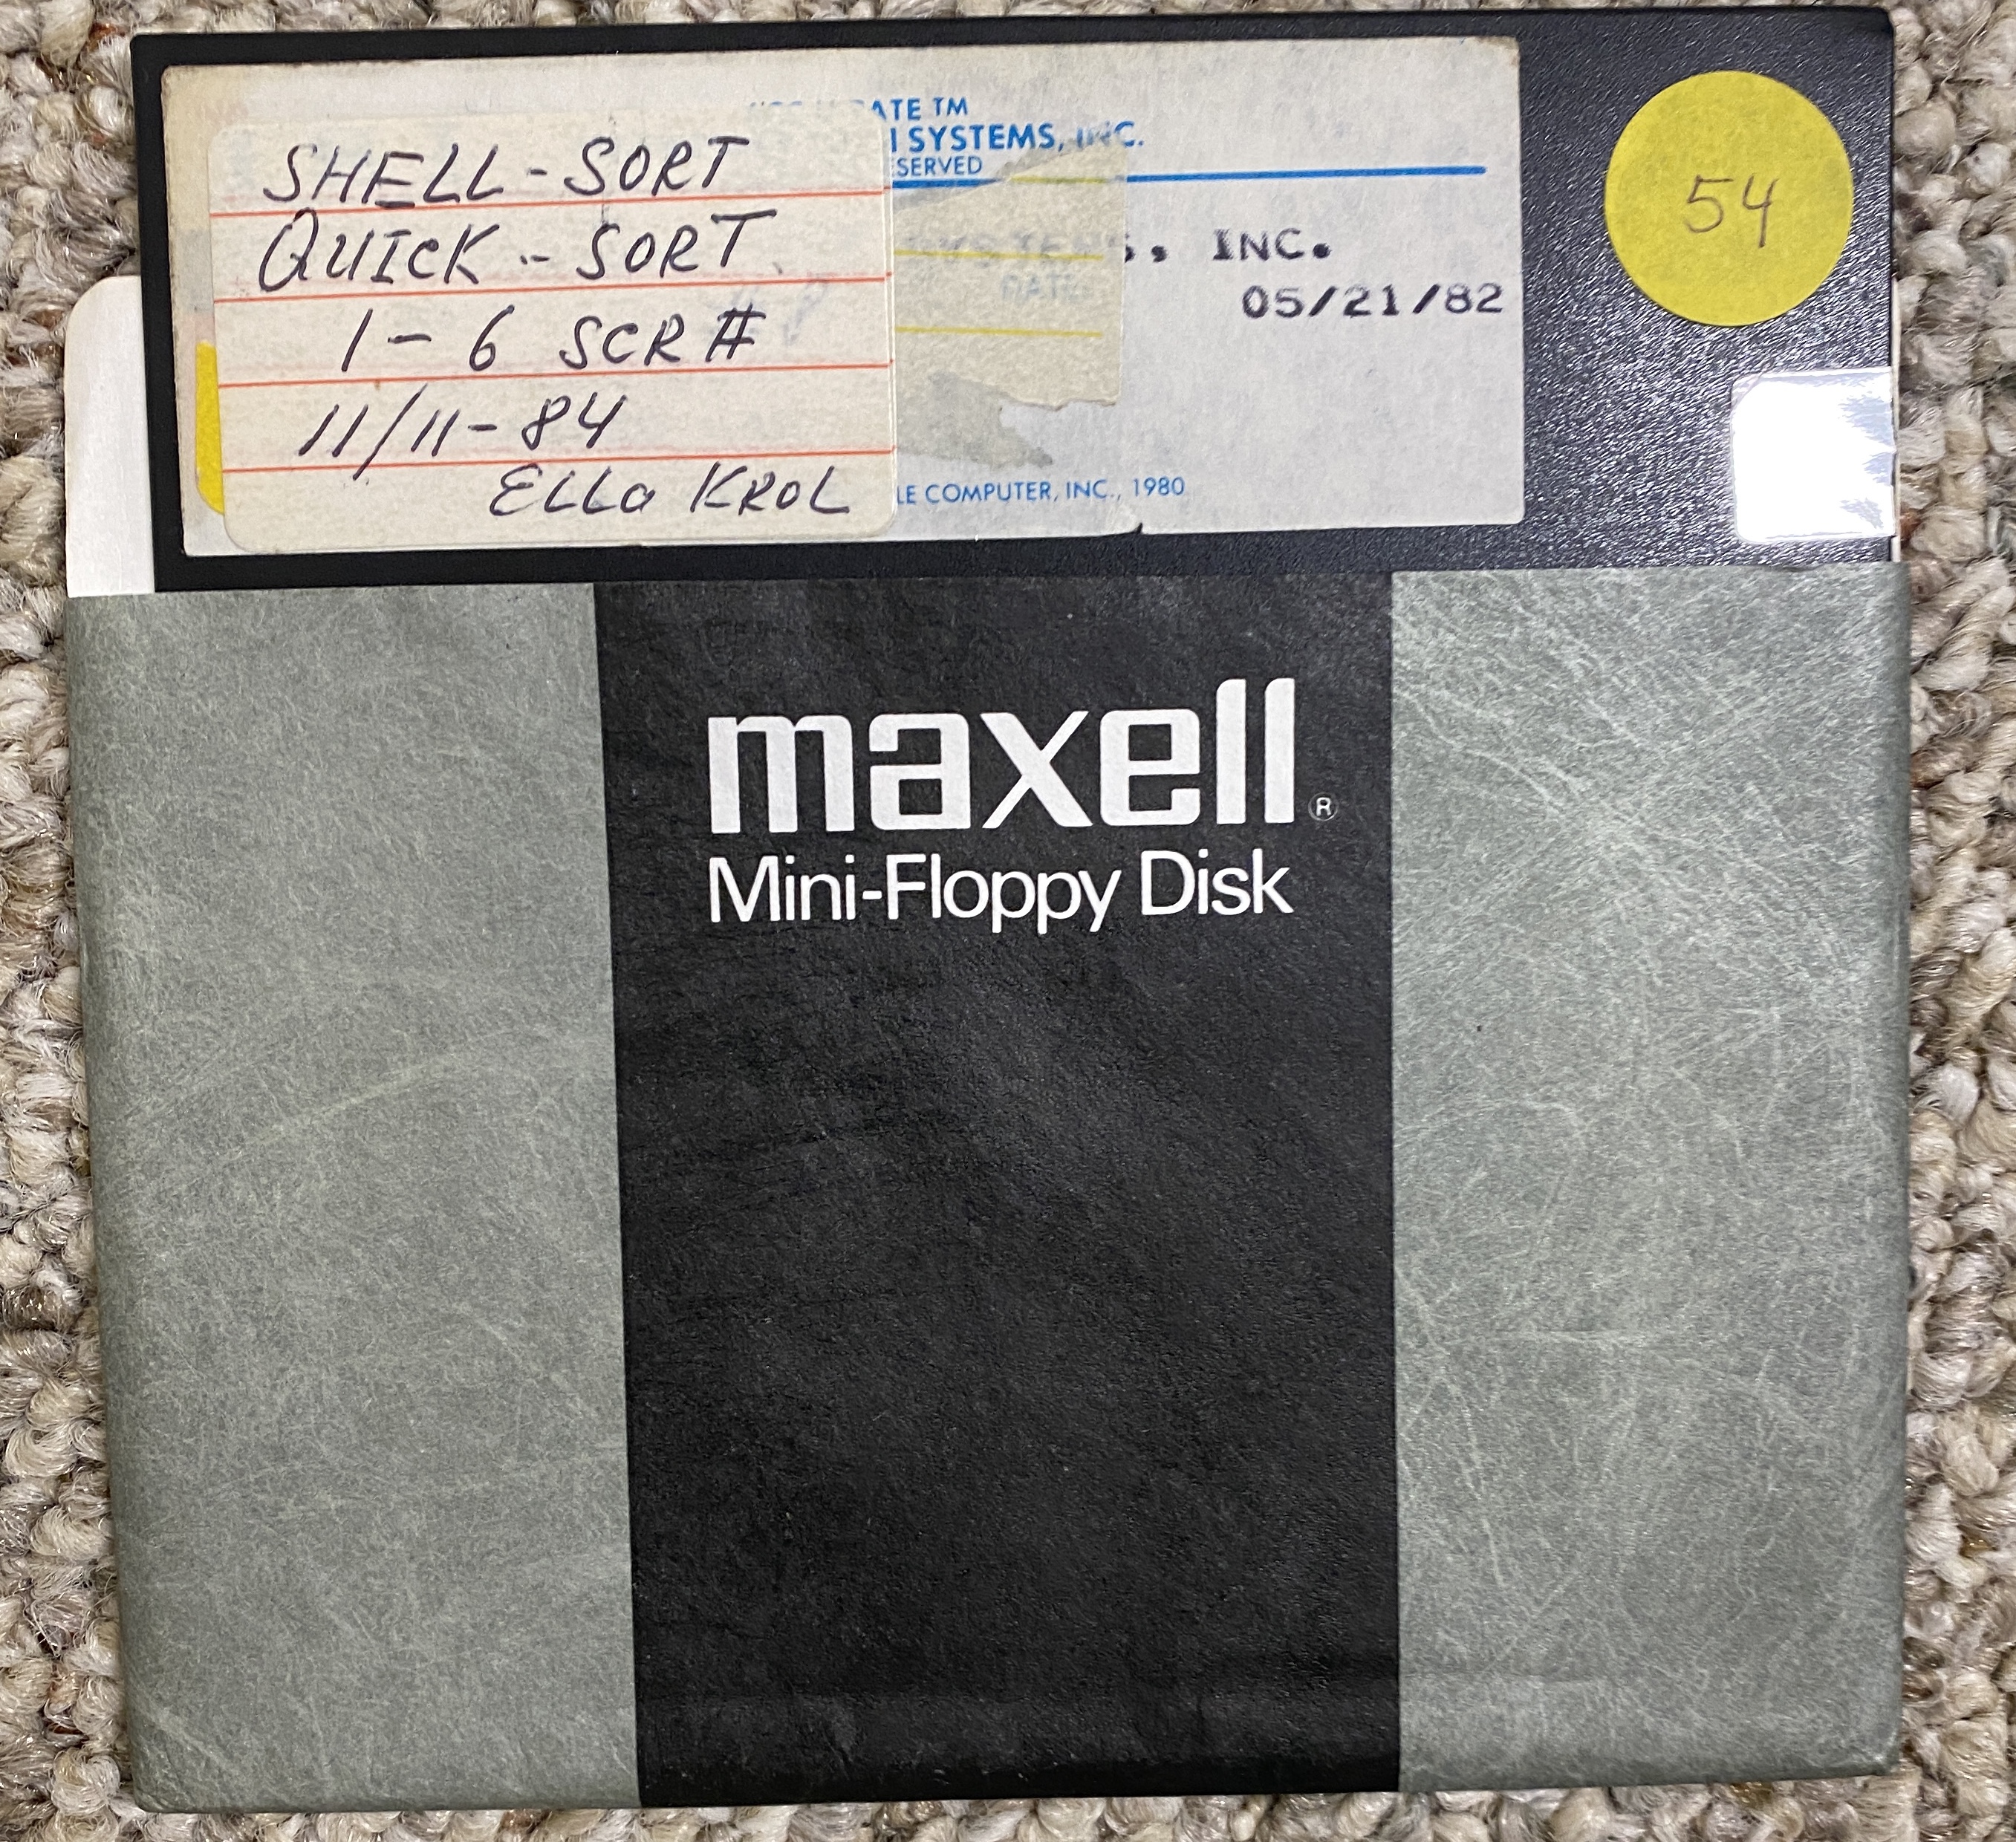 SHELL-SORT
QUICK-SORT
1-6 SCR #
11/11-84
ELLa KROL
ATE TM
SYSTEMS, INC.
SERVED
INC.
RATE
05/21/82
LE COMPUTER, INC., 1980
54
maxell®
Mini-Floppy Disk